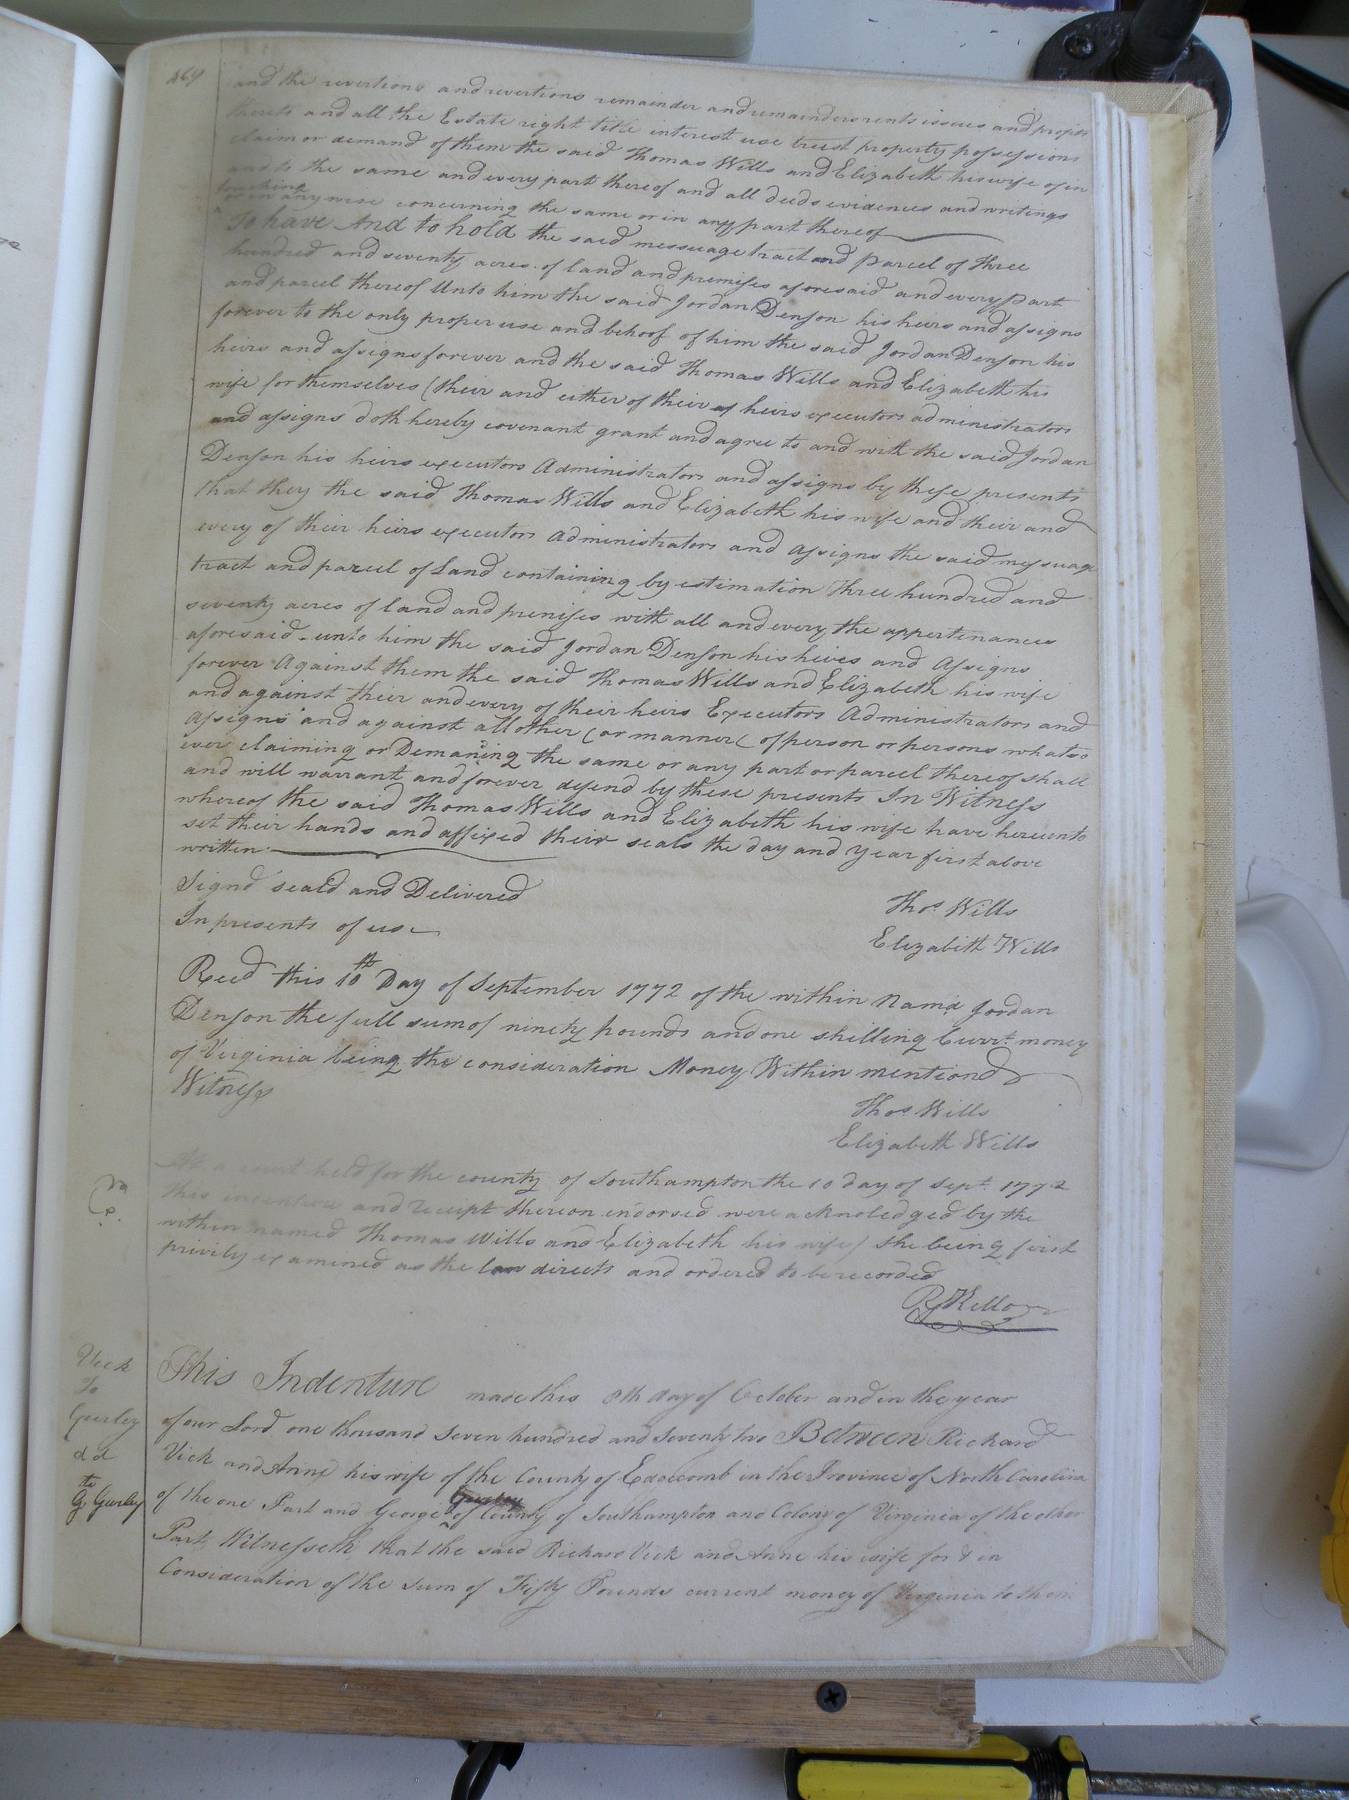 469
and the revertions and revertions remainder and remainders rents issues and profits
thereto and all the Estate right title interest use trust property possessions
claim or demand of them the said Thomas Wills and Elizabeth his wife of in
and to the same and every part thereof and all deeds evidences and writings
touching
or in any wise concerning the same or in any part thereof
To have And to hold the said messuage tract and Parcel of Three
hundred and seventy acres of land and premises aforesaid and every Part
and parcel thereof Unto him the said Jordan Denson his heirs and assigns
forever to the only proper use and behoof of him the said Jordan Denson his
heirs and assigns forever and the said Thomas Wills and Elizabeth his
wife for themselves (their and either of their heirs executors administrators
and assigns doth hereby covenant grant and agree to and with the said Jordan
Denson his heirs executors Administrators and assigns by these presents
that they the said Thomas Wills and Elizabeth his wife and their and
every of their heirs executors Administrators and Assigns the said messuage
tract and parcel of Land containing by estimation Three hundred and
seventy acres of land and premises with all and every the appertenances
aforesaid unto him the said Jordan Denson his heires and Assigns
forever Against them the said Thomas Wills and Elizabeth his wife
and against their and every of their heirs Executors Administrators and
Assigns and against all other (or manner ( of person or persons whatso
ever claiming or Demaning the same or any part or parcel thereof shall
and will warrant and forever defend by these presents In Witness
whereof the said Thomas Wills and Elizabeth his wife have hereunto
set their hands and affixed their seals the day and year first above
written
Signd seald and Delivered
In presents of us
Thos Wills
Elizabeth Wills
Recd this 10th Day of September 1772 of the within Namd Jordan
Denson the full sum of ninety pounds and one shilling Currt money
of Virginia being the consideration Money Within mentiond
Witness
Thos Wills
Elizabeth Wills
At a court held for the county of Southampton the 10 day of Sept 1772
this indenture and receipt thereon indorsed were acknoledged by the
within named Thomas Wills and Elizabeth his wife / she being first
privily examined as the law directs and ordered to be recorded
R Kello
Vick
To
Gurley
dd
to
G Gurley
This Indenture made this 8th day of October and in the year
of our Lord one thousand Seven hundred and seventy two Between Richard
Vick and Anne his wife of the County of Edgecomb in the Province of North Carolina
Gurley
of the one Part and George of County of Southampton and Colony of Virginia of the other
Part, Witnesseth that the said Richard Vick and Anne his wife for & in
Consideration of the sum of Fifty Pounds current money of Virginia to them